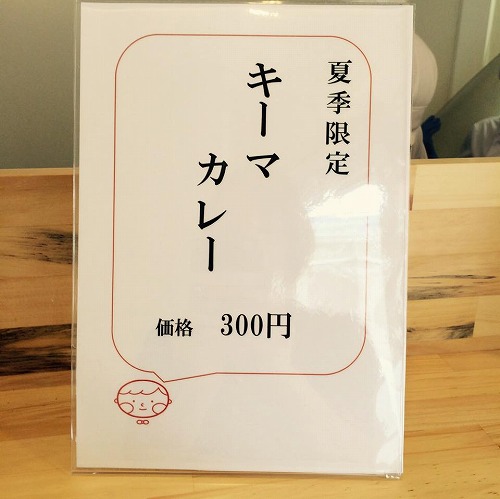 夏季限定
キーマ
カレー
価格 300円